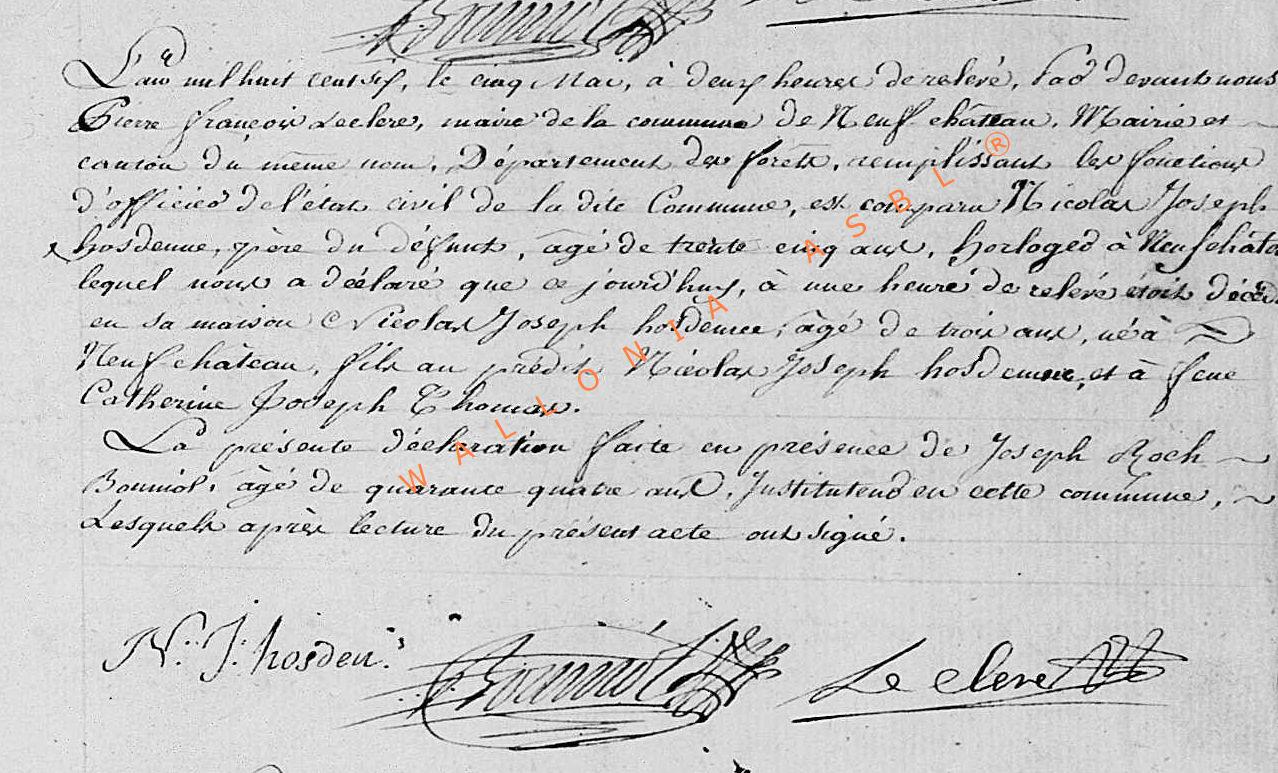 Bounniol
L'an mil huit cent six, le cinq Mai, à deux heures de relevé, Pard devant nous
Pierre françois Leclerc, maire de la commune de Neufchâteau, Mairie et
canton du même nom, Département des forêts, remplissant les fonctions
d'officier de l'état civil de la dite Commune, est comparu Nicolas Joseph
hosdenne, père du défunt, âgé de trente cinq ans, horloger à Neufchâte
lequel nous a déclaré que ce jourd'huy, à une heure de relevé étoit décéd
en sa maison Nicolas Joseph hosdenne, âgé de trois ans, né à
Neufchâteau, fils au prédit Nicolas Joseph hosdenne, et à feue
Catherine Joseph Thomas.
La présente déclaration faite en présence de Joseph Roch
Bouniol, âgé de quarante quatre ans, Instituteur en cette commune,
Lesquels après lecture du présent acte ont signé.
N: J: hosden: Bouniol Leclerc
WALLONIA ASBL ®